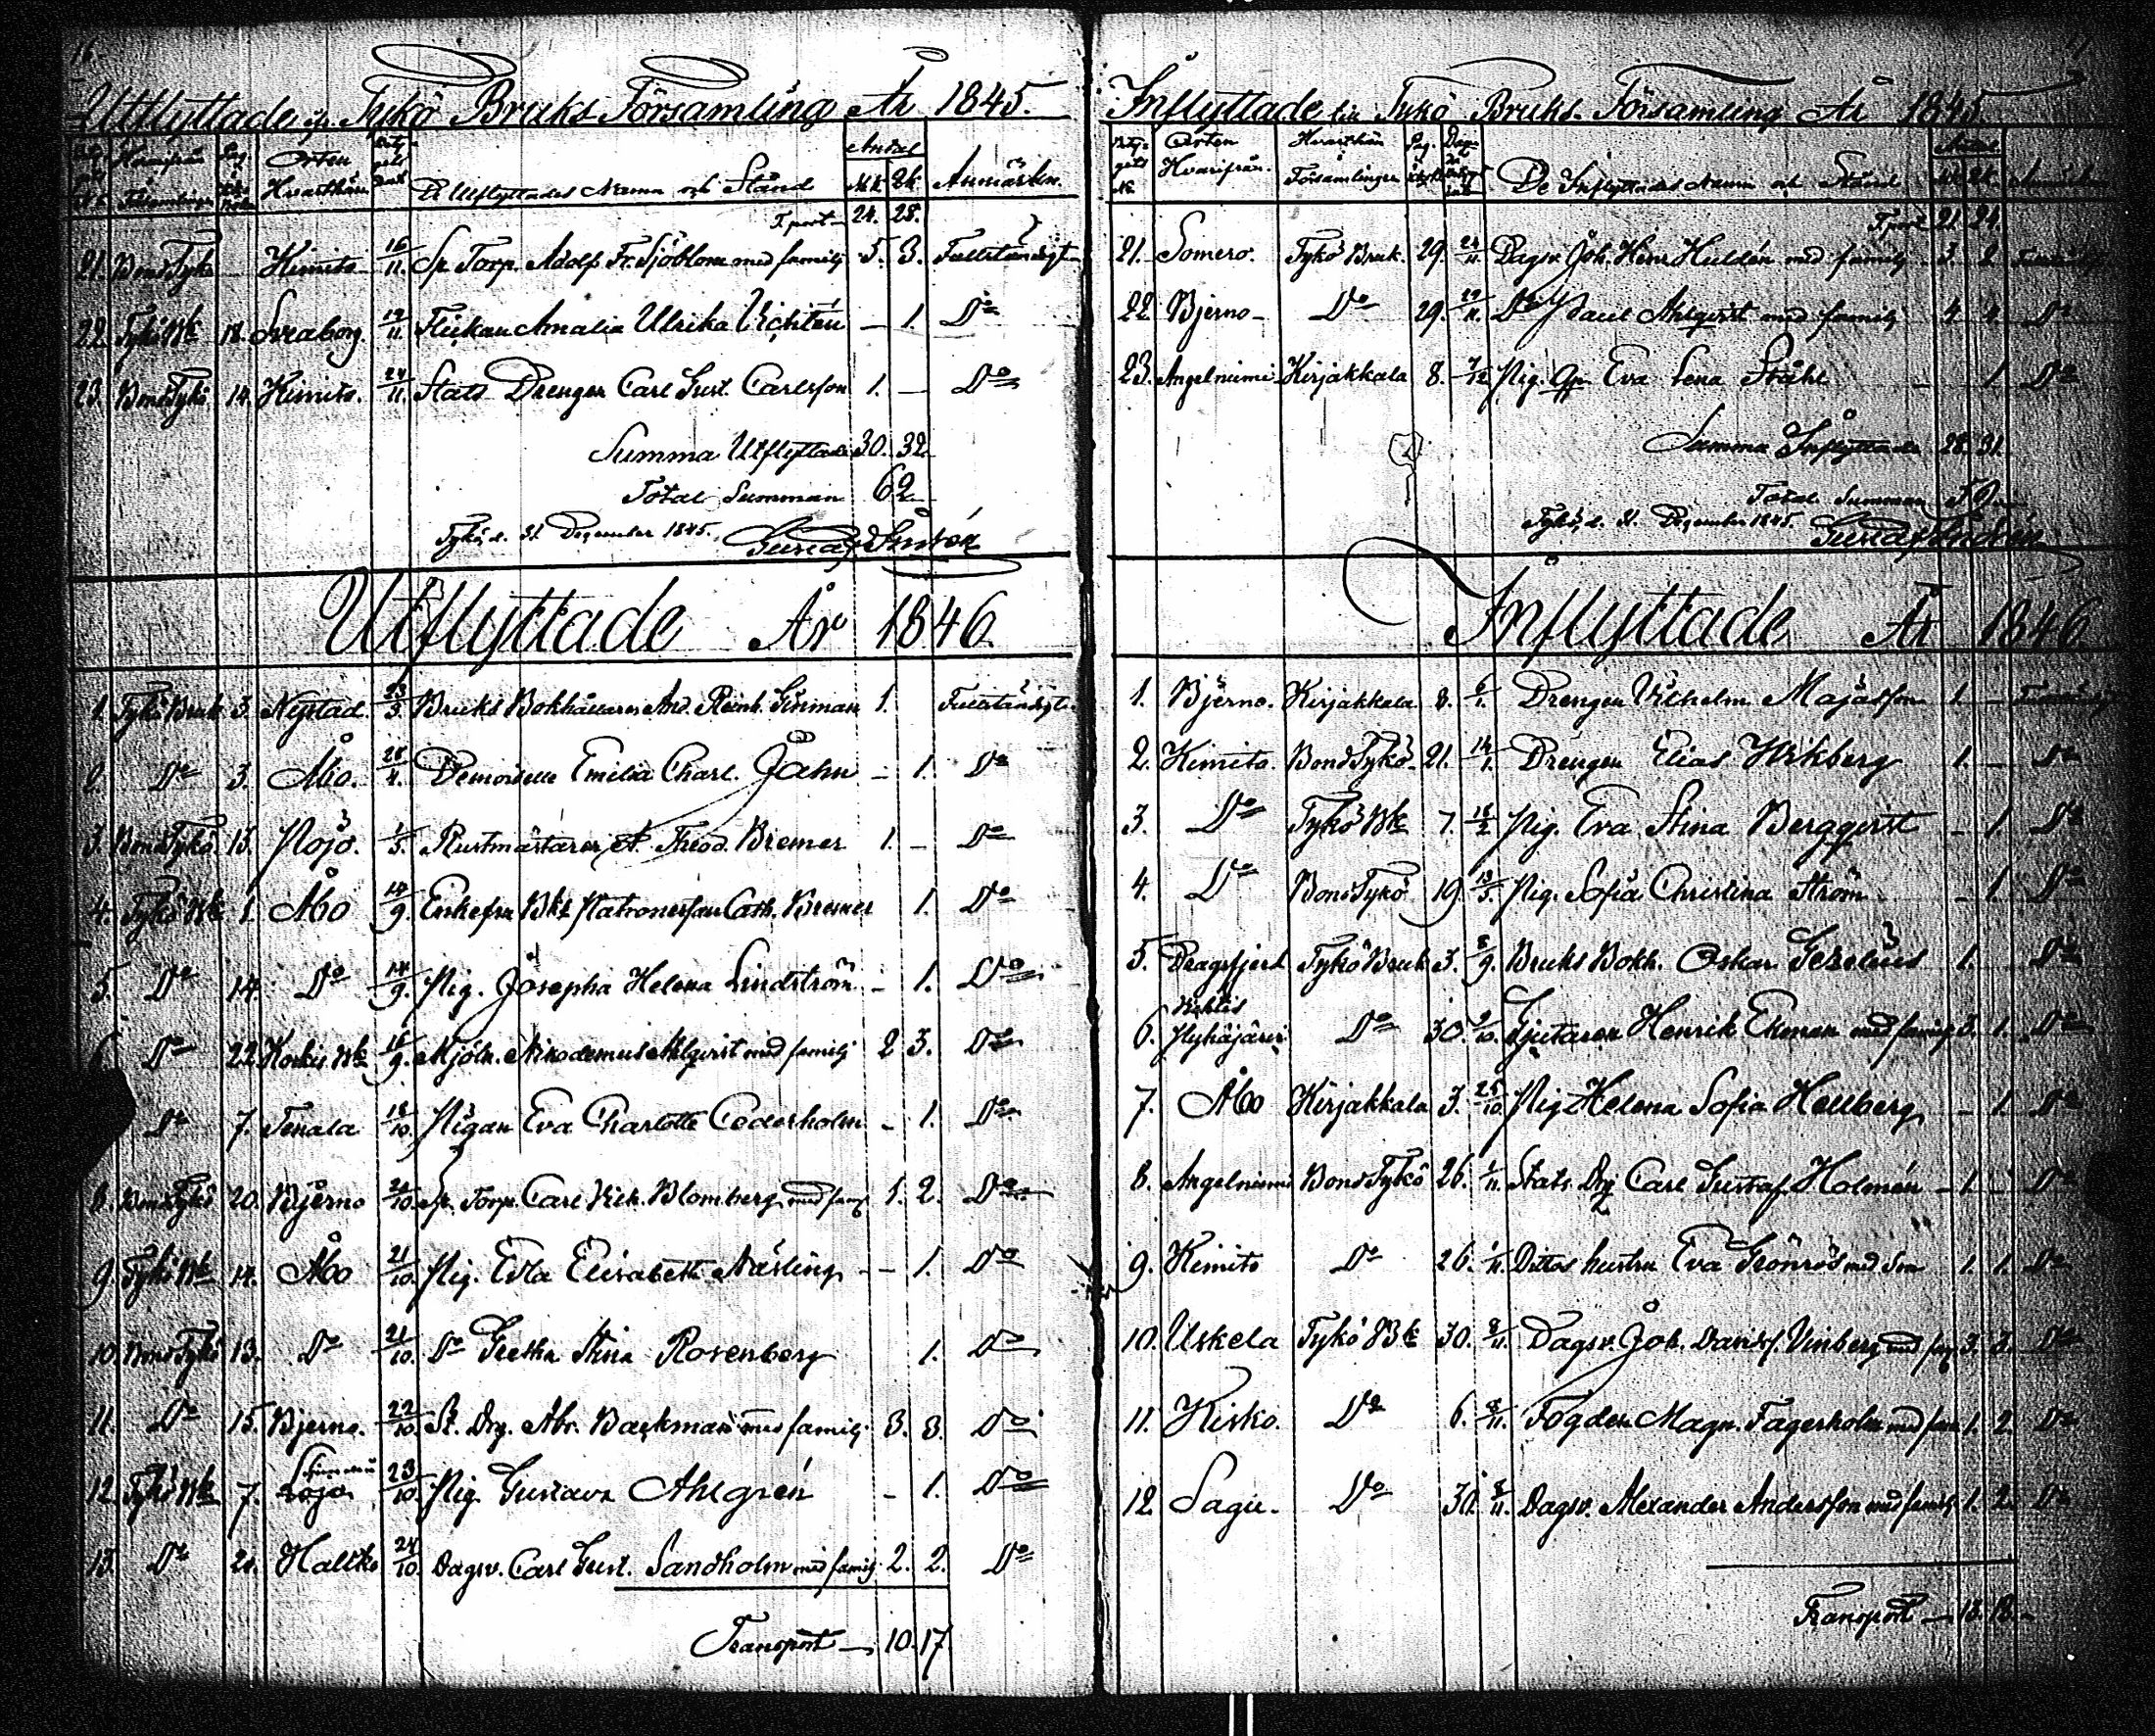 16
Utflyttade ifr. Tykö Bruks Församling År 1845.
Hvarifrån Församlingen Orten Hvarthän De Utflyttades Namn och Stånd Antal Mk. Qk. Anmärkn.
Tr.port 24. 28.
21. Bond Tykö – Kimito 16/11. Sp. Torp. Adolf Fr. Sjöblom med familj 5. 3. Fullständigt
22. Tykö Bk 18. Sveaborg. 19/11. Flickan Amalia Ulrika Vichtén – 1. Do
23. Bond Tykö 14. Kimito. 24/11. Stats Drengen Carl Gust. Carlsson 1. – Do
Summa Utflyttade 30. 32.
Total Summan 62.
Tykö, d. 31 December 1845.
Utflyttade År 1846.
1. Tykö Bruk 3. Nystad. 23/3. Bruks Bokhållaren And. Reinh. 1. Fullständigt
2. Do 3. Åbo. 28/4. Demoiselle Emilia Charl. Jahn – 1. Do
3. Bond Tykö. 13. Nojo. 1/5. Rustmästaren A. Theod. Bremer 1. – Do
4. Tykö Bk 1. Åbo 14/9. Enkefru Bks Patronessan Cath. Bremer 1. Do
5. Do 14. Do 14/9. Pig. Josepha Helena Lindström – 1. Do
6. Do 22. Koskis Bk 16/9. Mjöln. Nikodemus Ahlqvist med familj 2 3. Do
Do 7. Tenala 18/10. Pigan Eva Charlotte Cederholm – 1. Do
8. Bond Tykö 20. Bjerno 20/10. Sp. Torp. Carl Vilh. Blomberg med famj 1. 2. Do
9. Tykö Bk 14. Åbo 21/10. Pig. Eva Elisabeth Närling – 1. Do
10. Bond Tykö 13. Do 21/10. Do Gretha Stina Rosenberg 1. Do
11. Do 15. Bjerno. 22/10. St. Drg. Abr. Backman med familj. 3. 3. Do
12. Tykö Bk 7. Lojo 23/10. Pig. Gustava Ahlgrén – 1. Do
13. Do 21. Halikko 24/10. Dagsv. Carl Gust. Sandholm med familj. 2. 2. Do
Transport – 10. 17
17
Inflyttade till Tykö Bruks Församling År 1845
Orten Hvarifrån. Hvarthän Församlingen Pag. De Inflyttades Namn och Stånd Antal Mk. Qk.
Tr.port 21. 24.
21. Somero. Tykö Bruk. 29. 24/11. Dagsv. Joh. Henr. Huldén med familj 3. 2
22. Bjerno – Do 29. 29/11. Do Paul Ahlqvist med familj 4 4. Do
23. Angelniemi Kirjakkala 8. 7/12 Pig. Eva Lena Ståhl – 1 Do
Summa Inflyttade 28. 31.
Total Summan 59.
Tykö, d. 31. December 1845.
Inflyttade År 1846
1. Bjerno. Kirjakkala 8. 6/1. Drengen Vilhelm Majasson 1. –
2. Kimito. Bond Tykö. 21. 14/1. Drengen Elias Wikberg 1. – Do
3. Do Tykö Bk 7. 18/2 Pig. Eva Stina Bergqvist – 1 Do
4. Do Bond Tykö 19. 13/5. Pig. Sofia Christina Ström – 1. Do
5. Dragsfjerd Tykö Bruk 3. 8/9. Bruks Bokh. Oskar Gezelius 1. Do
6. Do 30. 9/10. Gjutaren Henrik Ekman med familj 3. 1. Do
7. Åbo Kirjakkala 3. 25/10. Pig. Helena Sofia Hellberg – 1. Do
8. Angelniemi Bond Tykö 26. 1/11. Stats Drg Carl Gustaf Holmén – 1. – Do
9. Kimito Do 26. 1/11. Dittos hustru Eva Grönroos med Son 1. 1. Do
10. Uskela Tykö Bk 30. 8/11. Dagsv. Joh. Davidsf. Vinberg med famj 3. 3. Do
11. Kisko. Do 6. 8/11. Fogden Magn. Fagerholm med fam 1. 2. Do
12. Sagu. Do 30. 8/11. Dagsv. Alexander Andersson med familj 1. 2. Do
Transport – 13. 12.